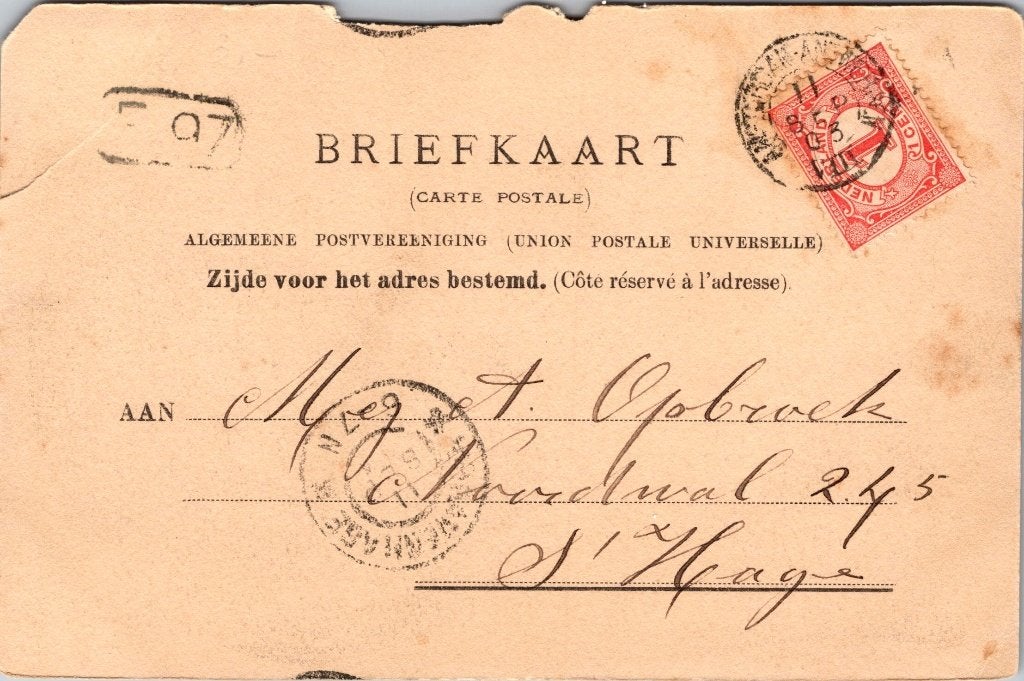 97
BRIEFKAART
(CARTE POSTALE)
ALGEMEENE POSTVEREENIGING (UNION POSTALE UNIVERSELLE)
Zijde voor het adres bestemd. (Côté réservé à l'adresse).
11 SEP
1 CENT
1
AAN Mej A. Opbroek
Noordwal 245
S' Hage
11 SEP